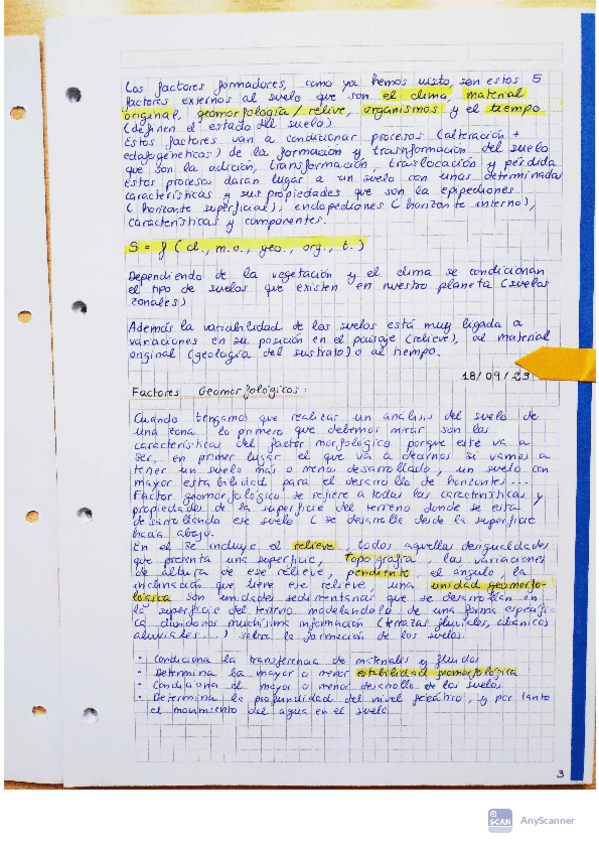 Los factores formadores, como ya hemos visto, son estos 5
factores externos al suelo que son el clima, material
original, geomorfología / relive, organismos y el tiempo
(definen el estado del suelo)
Estos factores van a condicionar procesos (alteración +
edafogenéticas) de la formación y transformación del suelo
que son la adición, transformación, traslocación y pérdida
Estos procesos daran lugar a un suelo con unas determinadas
características y sus propiedades que son la epipediones
(horizonte superficial), endopediones (horizonte interno),
características y componentes.
S = f ( cl., m.o., geo., org., t. )
Dependiendo de la vegetación y el clima se condicionan
el tipo de suelos que existen en nuestro planeta (suelos
zonales)
Además la variabilidad de los suelos está muy ligada a
variaciones en su posición en el paisaje (relieve), al material
original (geología del sustrato) o al tiempo.
18/09/23
Factores Geomorfológicos:
Cuando tengamos que realizar un análisis del suelo de
una zona lo primero que debemos mirar son las
características del factor morfológico porque este va a
ser, en primer lugar el que va a decirnos si vamos a
tener un suelo más o menos desarrollado, un suelo con
mayor estabilidad para el desarollo de horizontes...
Factor geomorfológico se refiere a todas las características y
propiedades de la superficie del terreno donde se esta
desarrollando ese suelo (se desarrolla desde la superficie
hacia abajo.
En el se incluye el relieve, todas aquellas desigualdades
que presenta una superficie, topografía, las variaciones
de altura de ese relieve, pendiente, el angulo la
inclinación que tiene ese relieve, una unidad geomorfo-
lógica son unidades sedimentarias que se desarrollan en
la superficie del terreno modelandolo de una forma especifi-
ca dandonos muchísima información (terrazas fluviales, abánicos
aluviales...) sobre la formación de los suelos.
· Condiciona la transferencia de materiales y fluidos
· Determina la mayor o menor estabilidad geomorfológica
· Condiciona el mayor o menor desarrollo de los suelos
· Determina la profundidad del nivel freático, y por tanto
el movimiento del agua en el suelo.
3
SCAN AnyScanner